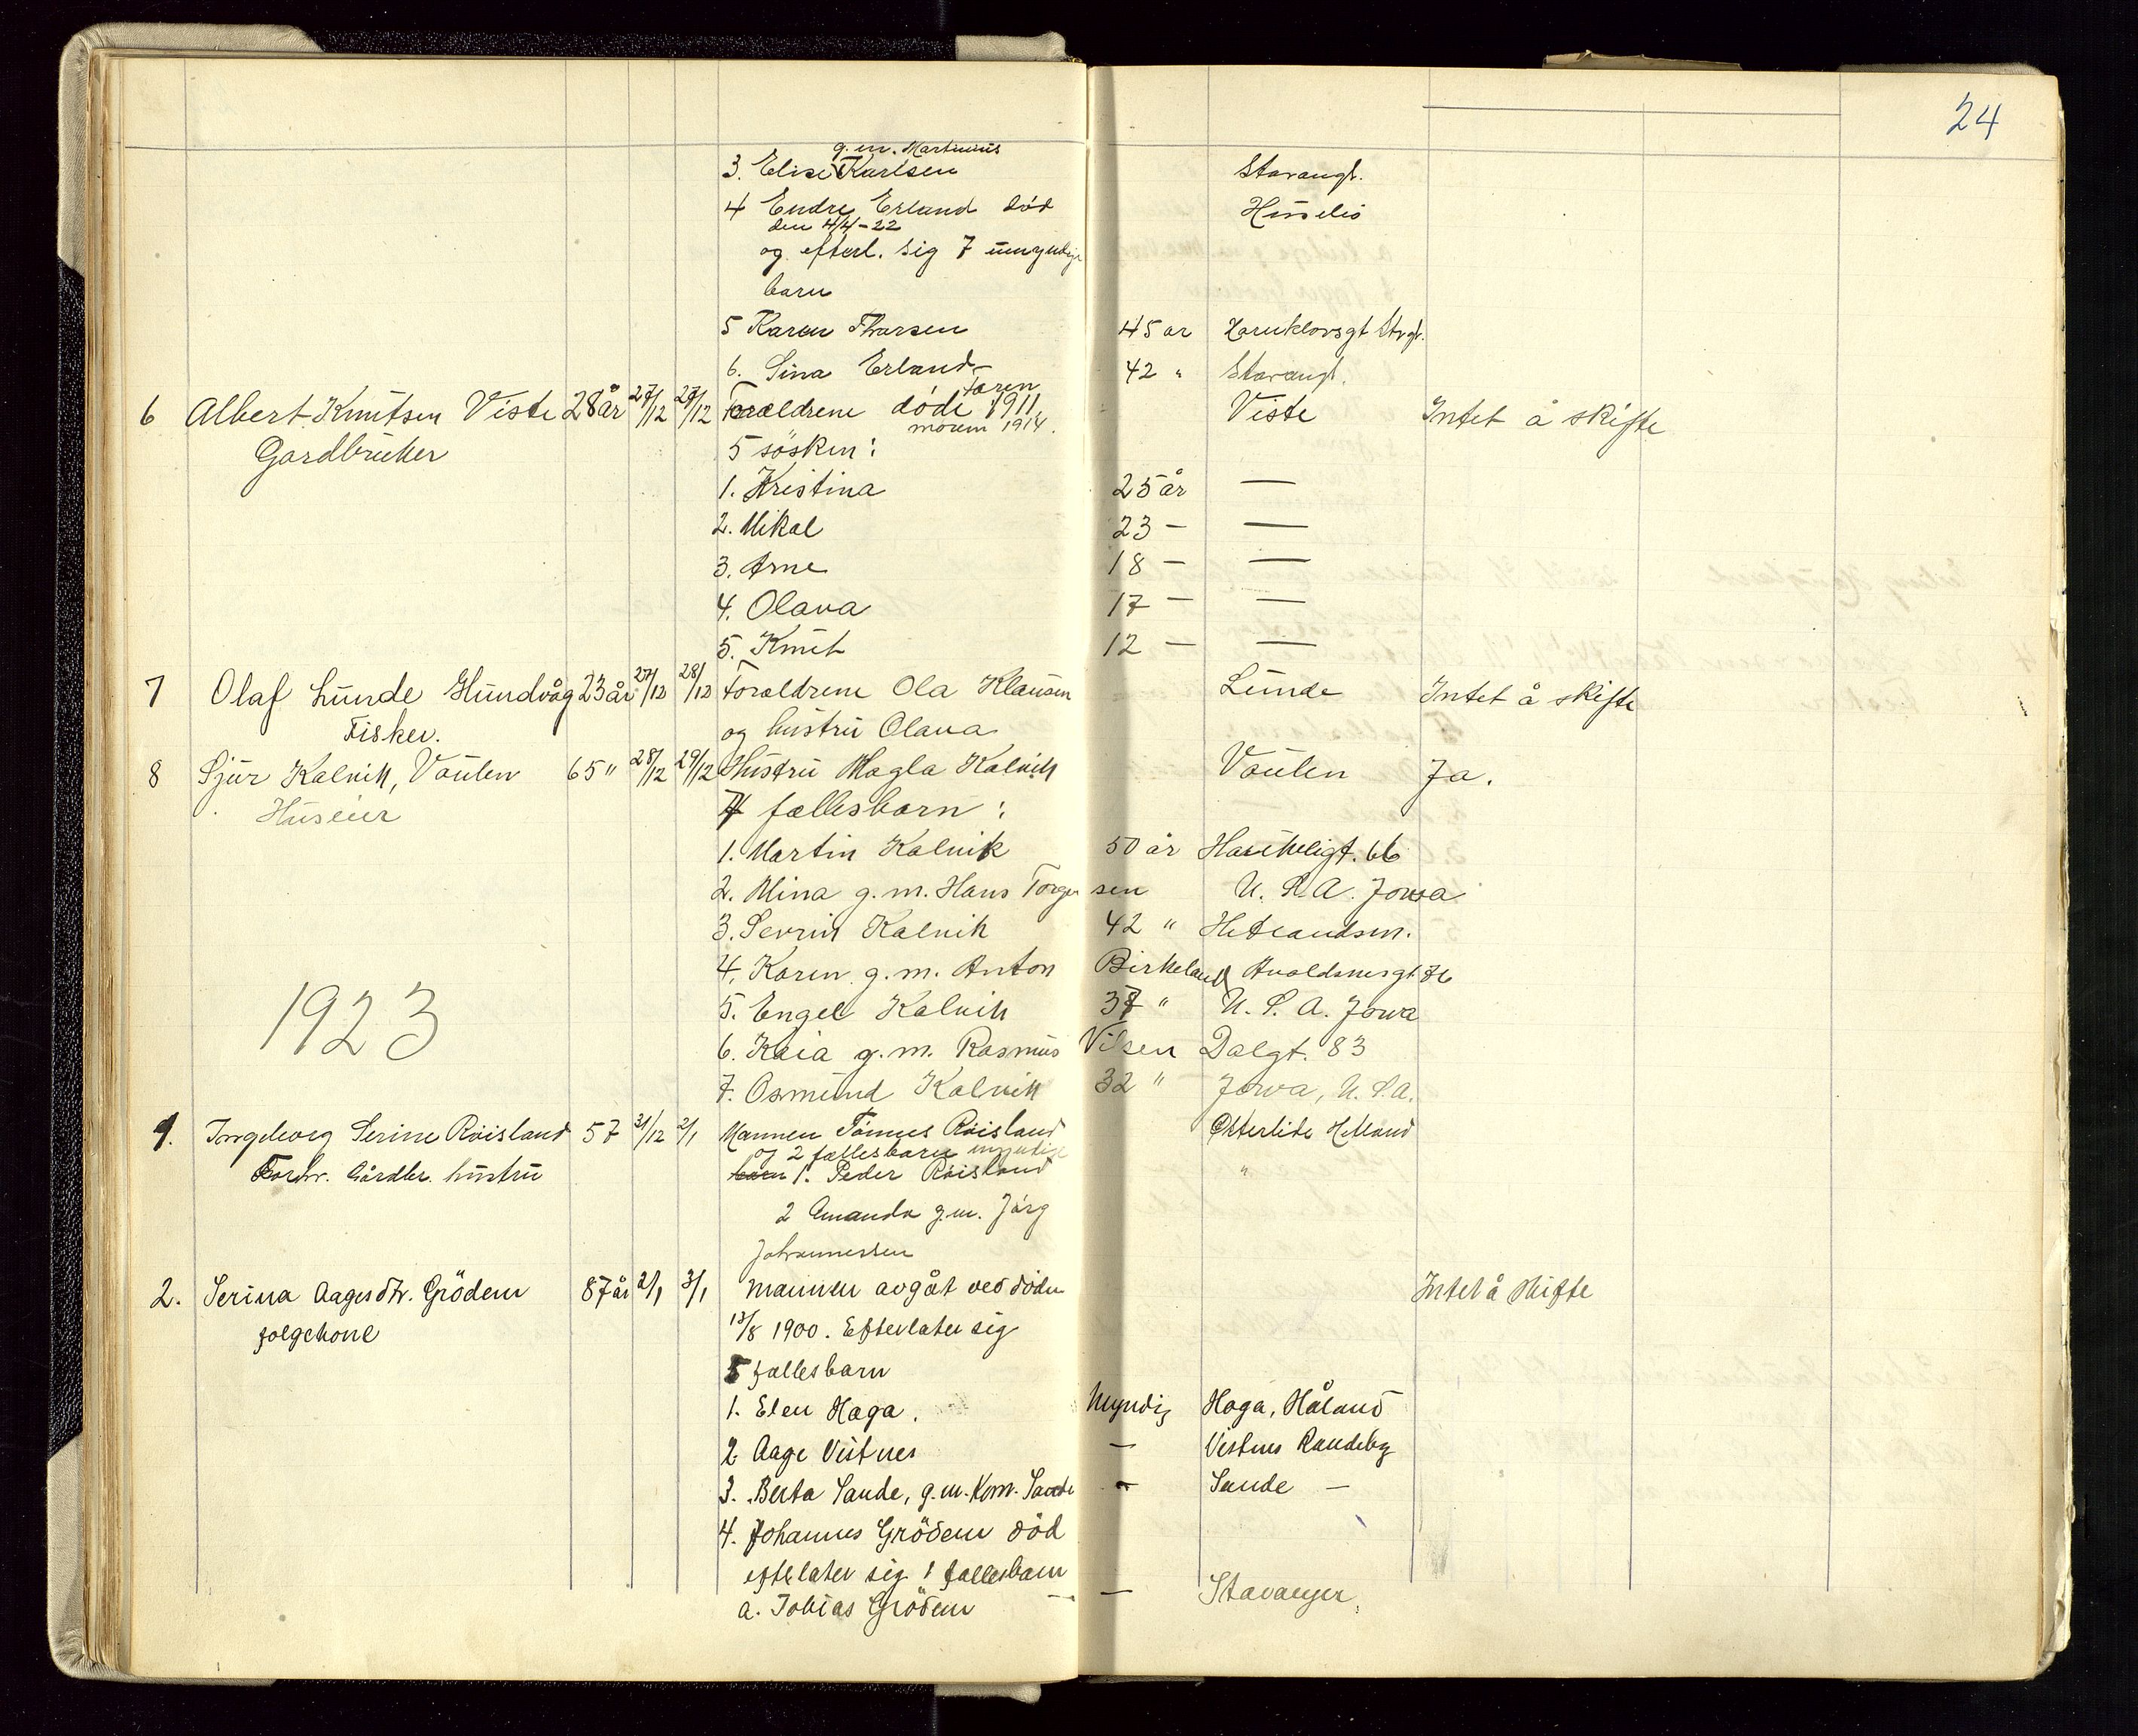 24
g.m. Martinius
3. Elise Karlsen Stavangr.
4 Endre Erland död
den 4/4-22
og efterl. sig 7 umyndige
barn
5 Karen Thorsen 45 ar Stvgr.
6. Sina Erland 42 " Stavangr.
6 Albert Knutsen Viste 28 år 27/12 27/12 Forældrene döde faren 1911, Viste Intet å skifte
moren 1914.
Gardbruker 5 sösken:
1. Kristina 25 år —
2. Mikal 23 — —
3. Arne 18 — —
4. Olava 17 — —
5. Knut 12 — —
7 Olaf Lunde Hundvåg 23 år 27/12 28/12 Foræeldrene Ola Klausen Lunde Intet å skifte
Fisker. og hustru Olava
8 Sjur Kalvik, Vaulen 65 " 28/12 29/12 Hustru Magla Kalvik Vaulen Ja.
Huseier 7 fællesbarn:
1. Martin Kalvik 50 år Haukeligt. 66
2. Mina g.m. Hans Torgersen U. S. A. Jowa
3. Sevrin Kalvik 42 " Hetlandsm.
4. Karen g.m. Anton Birkeland Avaldsnesgt. 76
1923
5. Engel Kalvik 37 " U. S. A. Jowa
6. Kaia g.m. Rasmus Vilsen Dalgt. 83
7. Osmund Kalvik 32 " Jowa, U. S. A.
1. Ingeborg Serine Röisland 57 31/12 2/1 Mannen Tönnes Röisland Hetland
og 2 fællesbarn myndige
Forhv. Gårdbr. hustru barn 1. Peder Röisland "
2 Amanda g.m. Jörg
Johannessen
2. Serina Aagesdtr. Grödem 87 år 2/1 3/1 Mannen avgåt ved döden Intet å skifte
folgekone 13/8 1900. Efterlater sig
5 fællesbarn
1. Elen Haga. Myndig Haga, Håland
2 Aage Vistnes — Vistnes Randeberg
3. Berta Sande, g.m. Korn. Sande — Sande —
4. Johannes Grödem död
efterlater sig 1 fællesbarn
a. Tobias Grödem — Stavanger